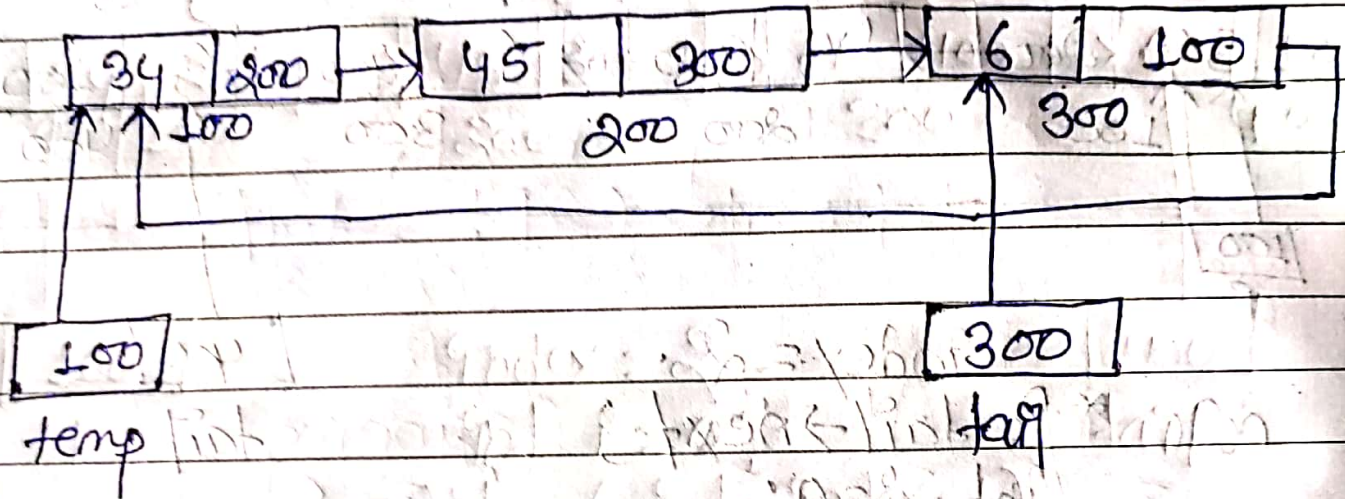 34 200 45 300 6 100
100 200 300
100 300
temp tail